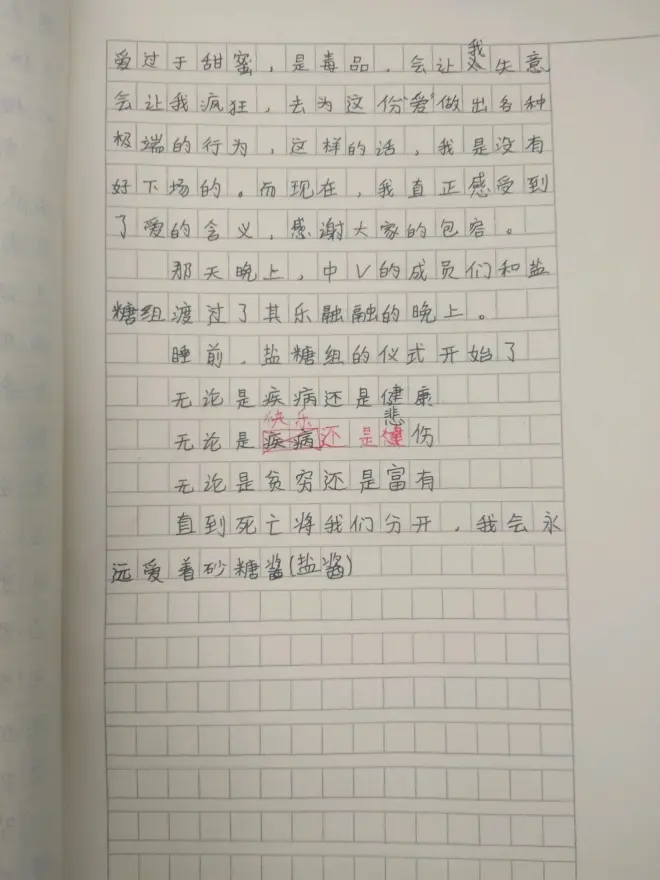 爱过于甜蜜，是毒品，会让我失意
会让我疯狂，去为这份“爱”做出各种
极端的行为，这样的话，我是没有
好下场的。而现在，我真正感受到
了爱的含义，感谢大家的包容。
那天晚上，中V的成员们和盐
糖组渡过了其乐融融的晚上。
睡前，盐糖组的仪式开始了
无论是疾病还是健康
无论是快乐还是悲伤
无论是贫穷还是富有
直到死亡将我们分开，我会永
远爱着砂糖酱(盐酱)